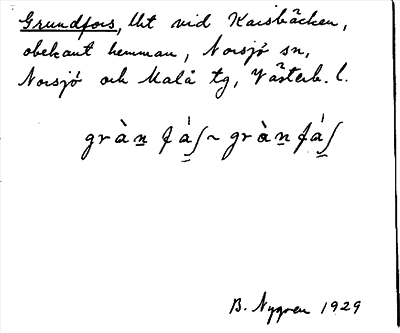 Grundfors, lht vid Kaisbäcken,
obekant hemman, Norsjö sn,
Norsjö och Malå tg, Västerb. l.
gràn fáʃ ~ gràn fáʃ
B. Nygren 1929